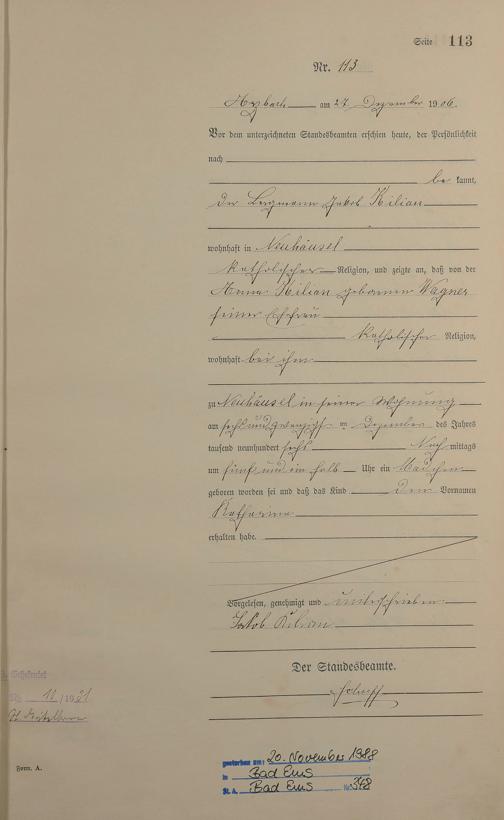 Seite 113
Nr. 113
am 27. Dezember 1906.
Vor dem unterzeichneten Standesbeamten erschien heute, der Persönlichkeit
nach
be kannt,
der Bergmann Jakob Kilian
wohnhaft in Neuhäusel
katholischer Religion, und zeigte an, daß von der
Anna Kilian geborenen Wagner
seiner Ehefrau
katholischer Religion,
wohnhaft bei ihm
zu Neuhäusel in seiner Wohnung
am sechsundzwanzigsten Dezember des Jahres
tausend neunhundert sechs Nach mittags
um fünf und ein halb Uhr ein Mädchen
geboren worden sei und daß das Kind den Vornamen
Katharina
erhalten habe.
Vorgelesen, genehmigt und unterschrieben
Jakob Kilian
Der Standesbeamte.
11/1931
Form. A.
gestorben am: 20. November 1988
in Bad Ems
St. A. Bad Ems Nr. 348